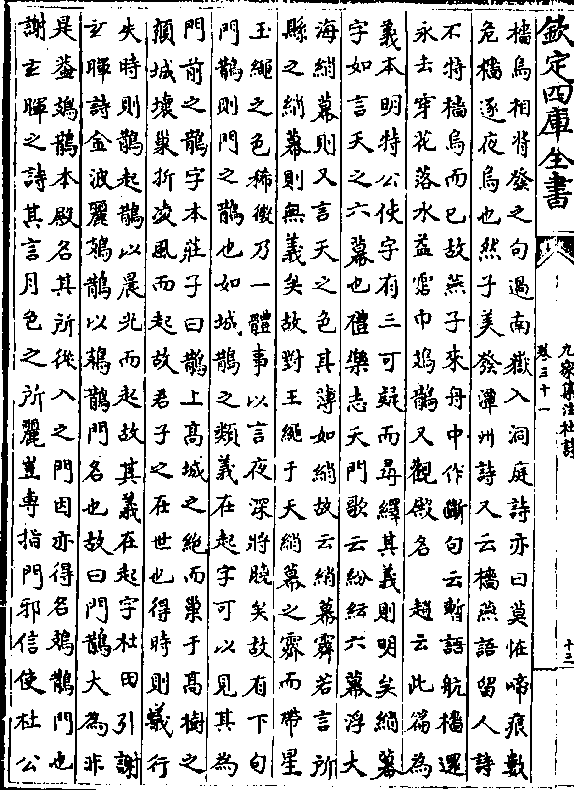 欽定四庫全書
九家集注杜詩
卷三十一
十三
檣烏相將發之句過南嶽入洞庭詩亦曰莫怪啼痕數
危檣逐夜烏也然子美發潭州詩又云檣燕語留人詩
不特檣烏而已故燕子來舟中作斷句云暫語航檣還
永去穿花落水益霑巾塢鵲又觀殿名 趙云此篇為
義本明特公使字有三可疑而尋繹其義則明矣綃幕
字如言天之六幕也禮樂志天門歌云紛紜六幕浮大
海綃幕則又言天之色其薄如綃故云綃幕霽若言所
縣之綃幕則無義矣故對玉繩于天綃幕之霽而帶星
玉繩之色稀微乃一體事以言夜深將曉矣故有下句
門鵲則門之鵲也如城鵲之類義在起字可以見其為
門前之鵲字本莊子曰鵲上高城之絶而巢于高樹之
顛城壞巢折凌風而起故君子之在世也得時則義行
失時則鵲起鵲以晨光而起故其義在起字杜田引謝
玄暉詩金波麗鳷鵲以鳷鵲門名也故曰門鵲大為非
是益鳷鵲本殿名其所從入之門因亦得名鳷鵲門也
謝玄暉之詩其言月色之所麗豈專指門邪信使杜公